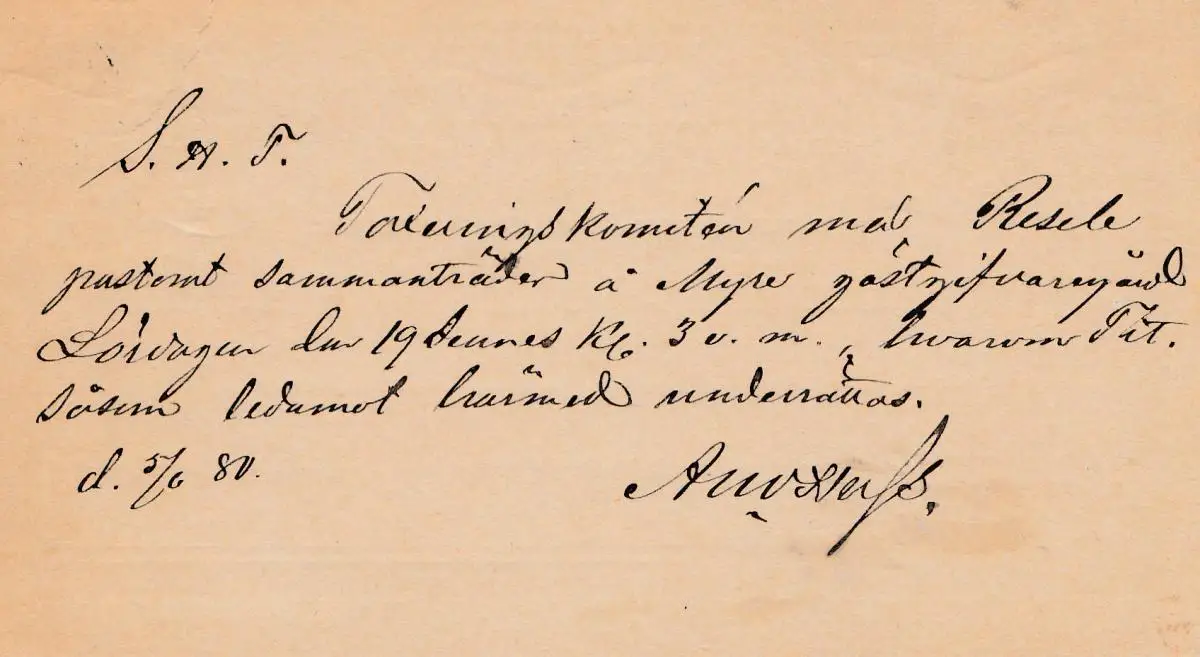 S. H. T.
Taxeringskomitén med Resele
pastorat sammanträder å Myre gästgifvaregård
Lördagen den 19 dennes Kl. 3 e. m., hvarom Tit.
såsom ledamot härmed underrättas.
d. 5/6 80.